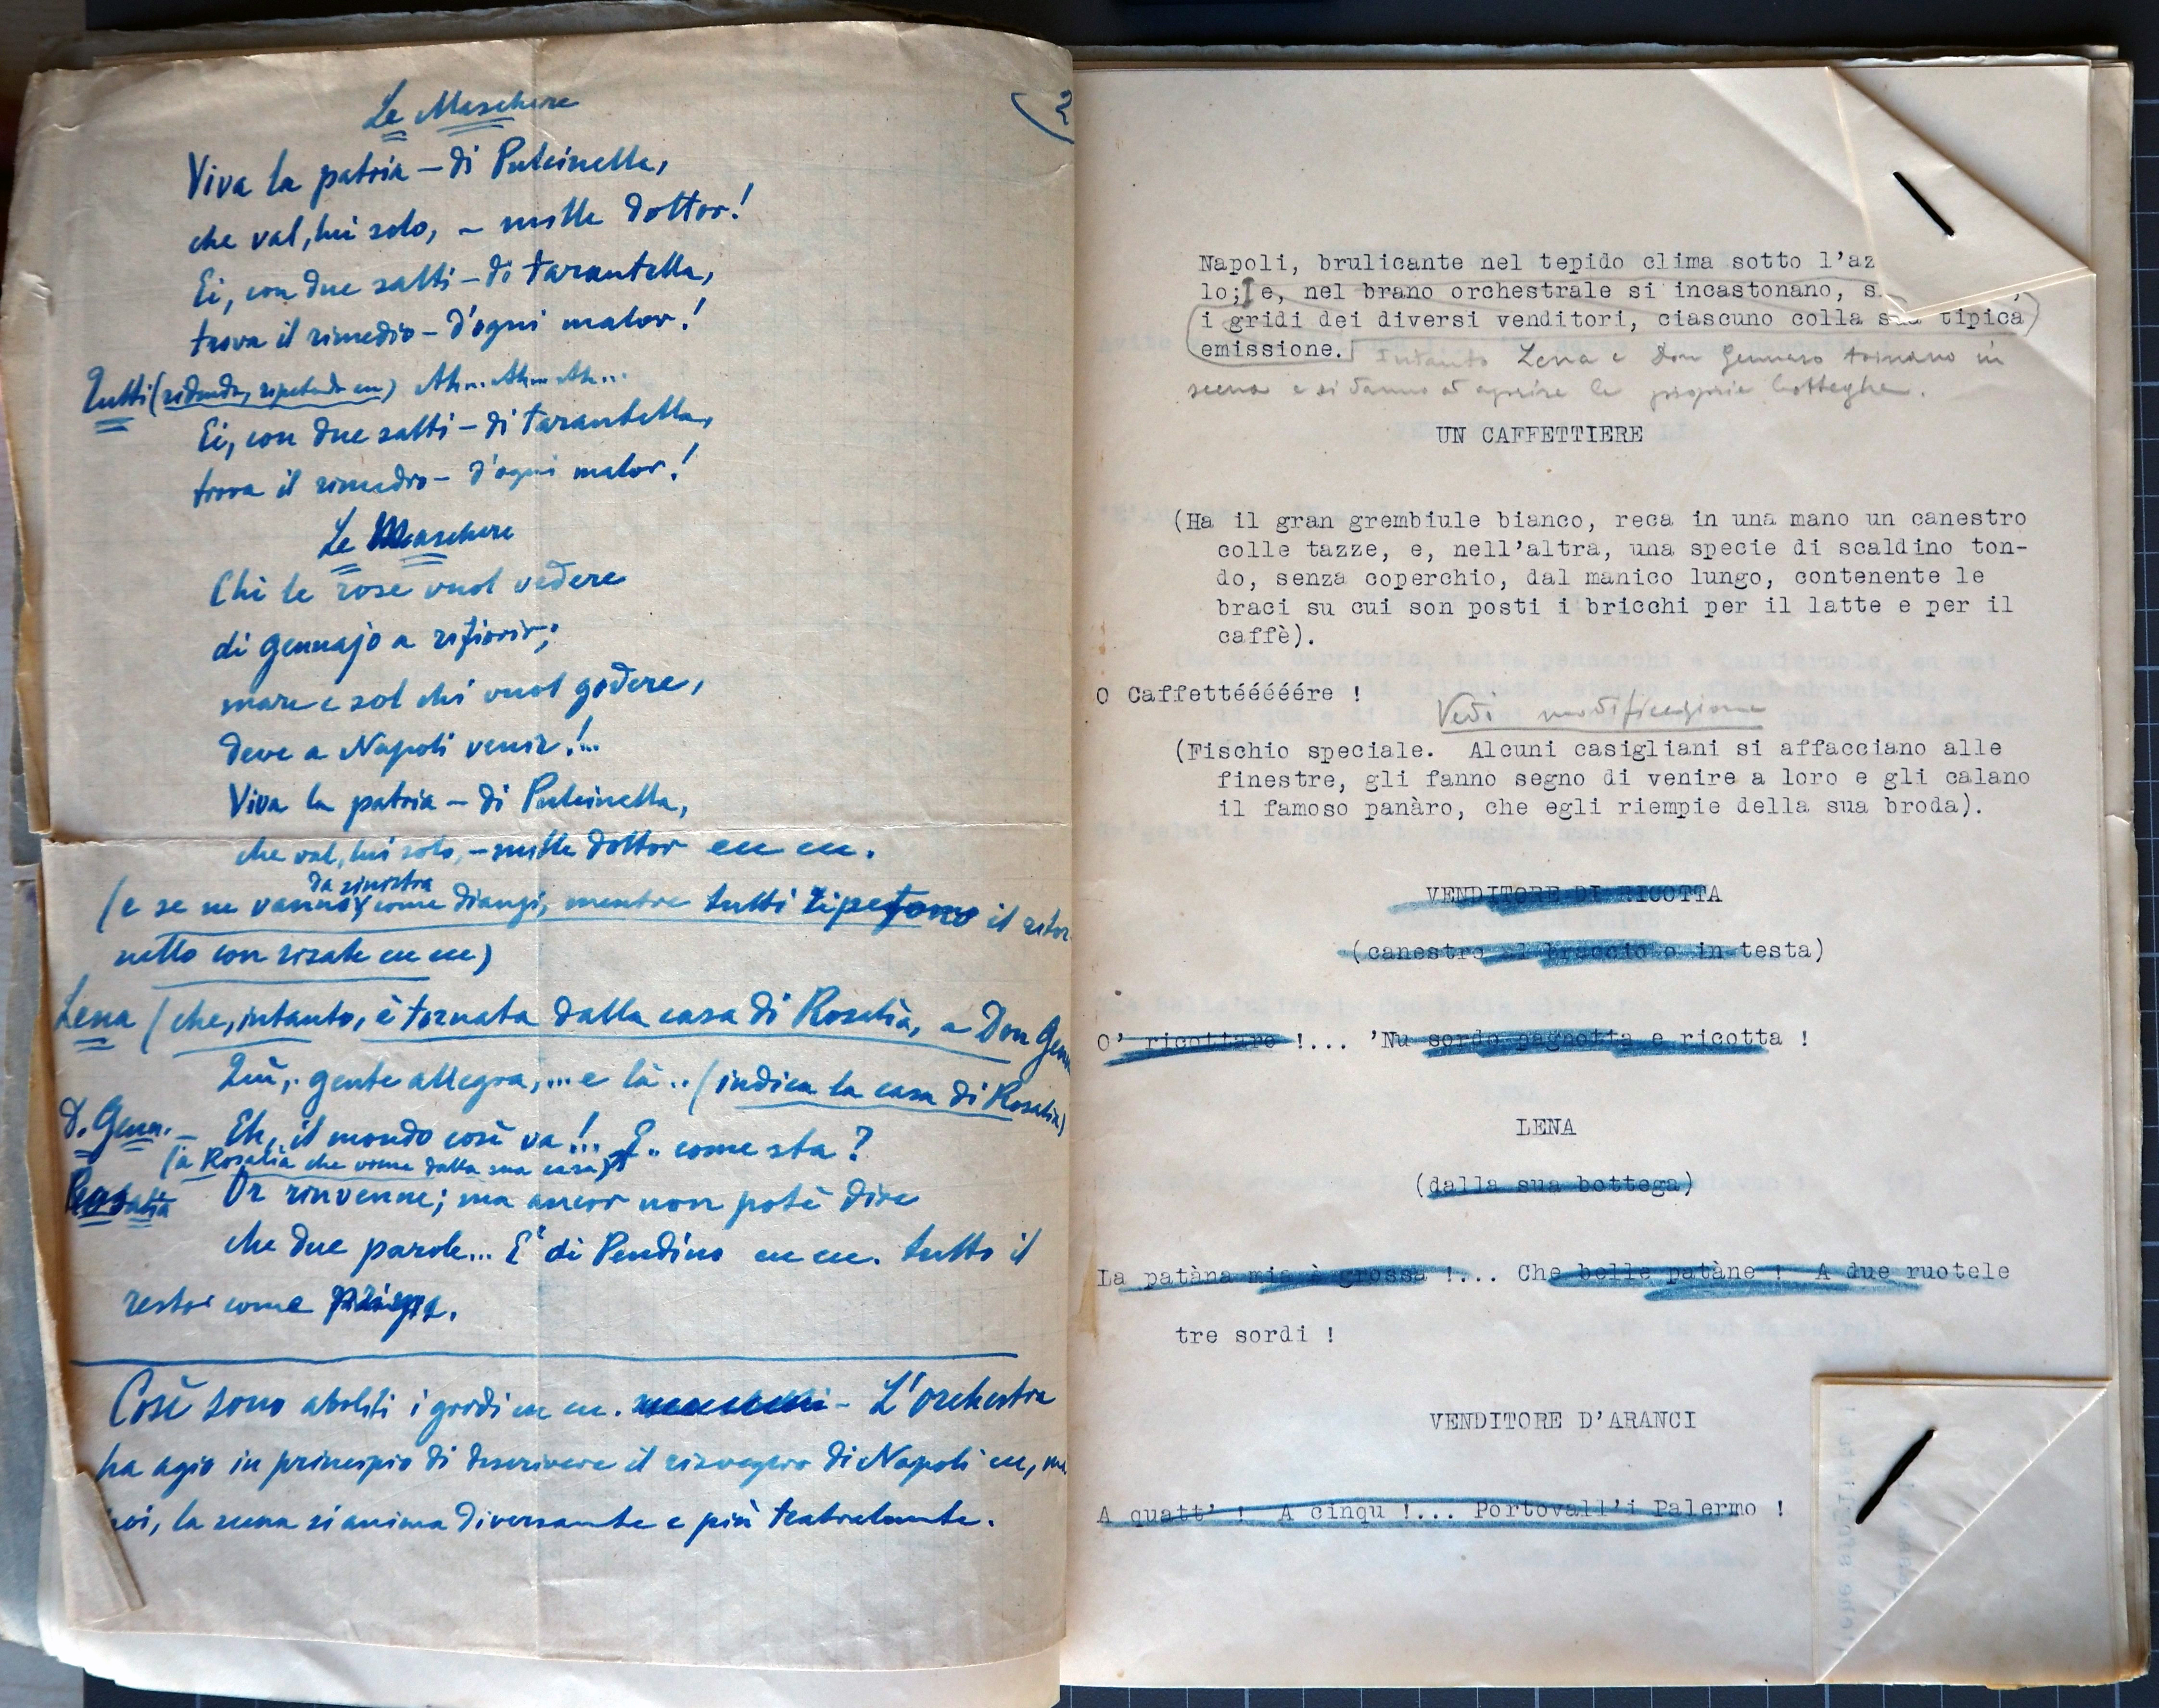 Le Maschere
2
Viva la patria – di Pulcinella,
che val, lui solo, – mille dottor!
Ei, con due salti – di tarantella,
trova il rimedio – d'ogni malor!
Tutti (ridendo, ripetendo ecc) Ah... Ah... Ah...
Ei, con due salti – di tarantella,
trova il rimedio – d'ogni malor!
Le Maschere
Chi le rose vuol vedere
di gennajo a rifiorir;
mare e sol chi vuol godere,
deve a Napoli venir!...
Viva la patria – di Pulcinella,
che val, lui solo, – mille dottor ecc ecc.
da sinistra
(e se ne vanno come dianzi, mentre tutti ripetono il ritor
nello con risate ecc ecc)
Lena (che, intanto, è tornata dalla casa di Rosalia, a Don Genn
Qui, gente allegra,... e là.. (indica la casa di Rosalia)
D. Genn. – Eh, il mondo così va!... E.. come sta?
(a Rosalia che viene dalla sua casa)
Rosalia Or rinvenne; ma ancor non potè dire
che due parole... E' di Pendino ecc ecc. tutto il
resto come prima.
Così sono aboliti i gridi ecc ecc. – L'orchestra
ha agio in principio di descrivere il risveglio di Napoli ecc, ma
poi, la scena si anima diversamente e più teatralmente.
Napoli, brulicante nel tepido clima sotto l'az
lo; e, nel brano orchestrale si incastonano, s
i gridi dei diversi venditori, ciascuno colla sua tipica
emissione. Intanto Lena e Don Gennaro tornano in
scena e si danno ad aprire le proprie botteghe.
UN CAFFETTIERE
(Ha il gran grembiule bianco, reca in una mano un canestro
colle tazze, e, nell'altra, una specie di scaldino ton-
do, senza coperchio, dal manico lungo, contenente le
braci su cui son posti i bricchi per il latte e per il
caffè).
O Caffettéééére !
Vedi modificazione
(Fischio speciale. Alcuni casigliani si affacciano alle
finestre, gli fanno segno di venire a loro e gli calano
il famoso panàro, che egli riempie della sua broda).
VENDITORE DI RICOTTA
(canestro al braccio o in testa)
O' ricottaro !... 'Nu sordo pagnotta e ricotta !
LENA
(dalla sua bottega)
La patàna mia è grossa !... Che belle patàne ! A due ruotele
tre sordi !
VENDITORE D'ARANCI
A quatt' ! A cinqu !... Portovall'i Palermo !